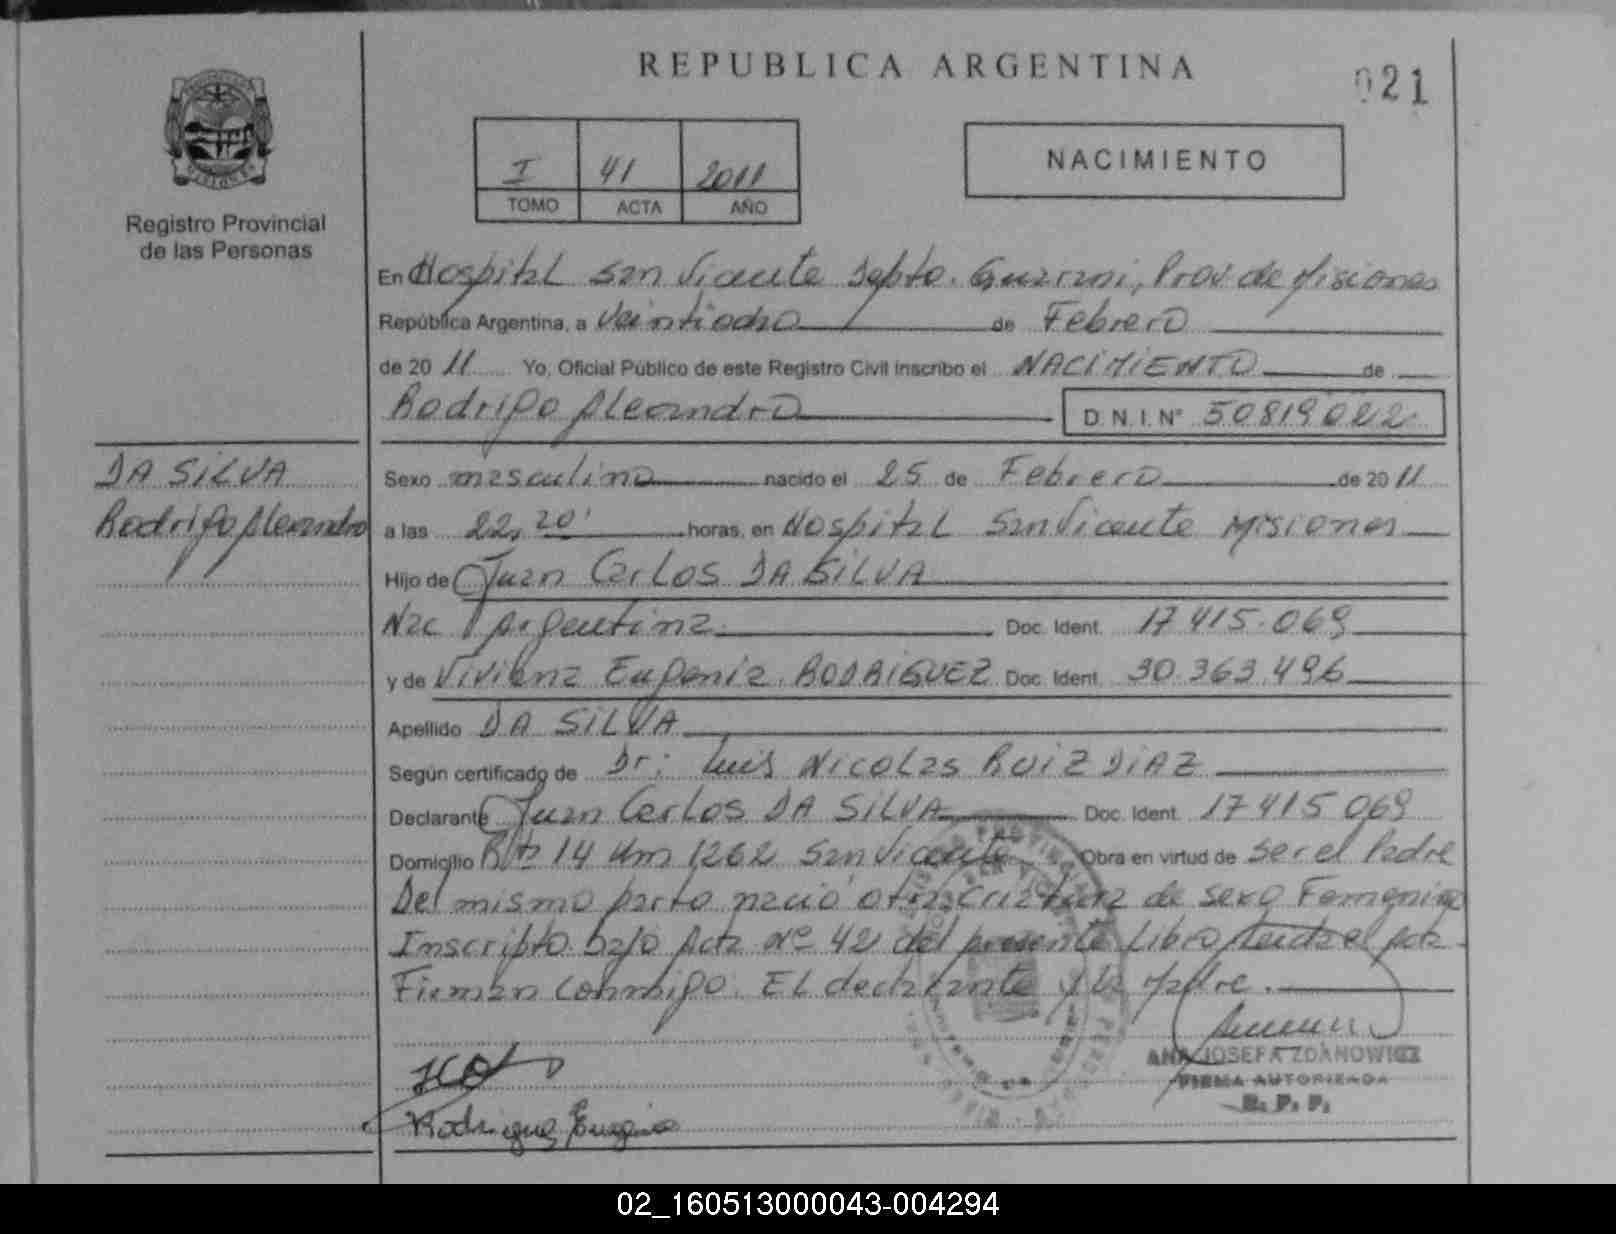 REPUBLICA ARGENTINA
021
I 41 2011
TOMO ACTA AÑO
NACIMIENTO
Registro Provincial
de las Personas
En Hospital San Vicente Depto. Guarani, Prov. de Misiones
República Argentina, a Veintiocho de Febrero
de 20 11 Yo, Oficial Público de este Registro Civil inscribo el NACIMIENTO de
Rodrigo Aleandro D.N.I. Nº 50819022
DA SILVA
Rodrigo Aleandro
Sexo masculino nacido el 25 de Febrero de 20 11
a las 22,20' horas, en Hospital San Vicente Misiones
Hijo de Juan Carlos DA SILVA
Nac Argentina Doc. Ident. 17 415.069
y de Viviana Eugenia RODRIGUEZ Doc. Ident. 30.363.496
Apellido DA SILVA
Según certificado de Dr: Luis Nicolas RUIZ DIAZ
Declarante Juan Carlos DA SILVA Doc. Ident. 17 415 069
Domicilio Rta 14 Km 1262 San Vicente Obra en virtud de Ser el Padre
Del mismo parto nacio otra criatura de sexo Femenino
Inscripto bajo Acta Nº 42 del presente Libro Leida el Acta
Firman conmigo. El declarante y la Madre.
ANA JOSEFA ZDANOWICZ
FIRMA AUTORIZADA
R. P. P.
Rodriguez Eugenia
02_160513000043-004294